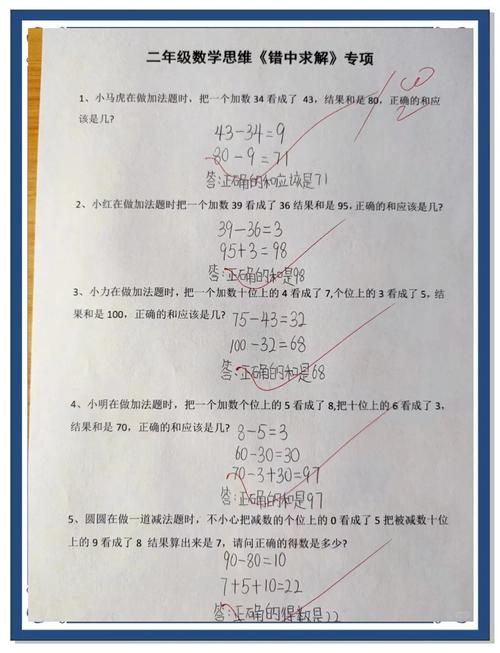 二年级数学思维《错中求解》专项
100
1、小马虎在做加法题时，把一个加数 34 看成了 43，结果和是 80，正确的和应
该是几?
43-34=9
80-9=71
答:正确的和应该是71
2、小红在做加法题时把一个加数 39 看成了 36 结果和是 95，正确的和应该是几?
39-36=3
95+3=98
答:正确的和是98
3、小力在做加法题时，把一个加数十位上的 4 看成了 7,个位上的 3 看成了 5，结
果和是 100，正确的和应该是几?
75-43=32
100-32=68
答:正确的和是68
4、小明在做加法题时，把一个加数个位上的 5 看成了 8,把十位上的 6 看成了 3，
结果和是 70，正确的和应该是几?
8-5=3
60-30=30
70-3+30=97
答:正确的和是97
5、圆圆在做一道减法题时，不小心把减数的个位上的 0 看成了 5 把被减数十位
上的 9 看成了 8 结果算出来是 7，请问正确的得数是多少?
90-80=10
7+5+10=22
答:正确的得数是22